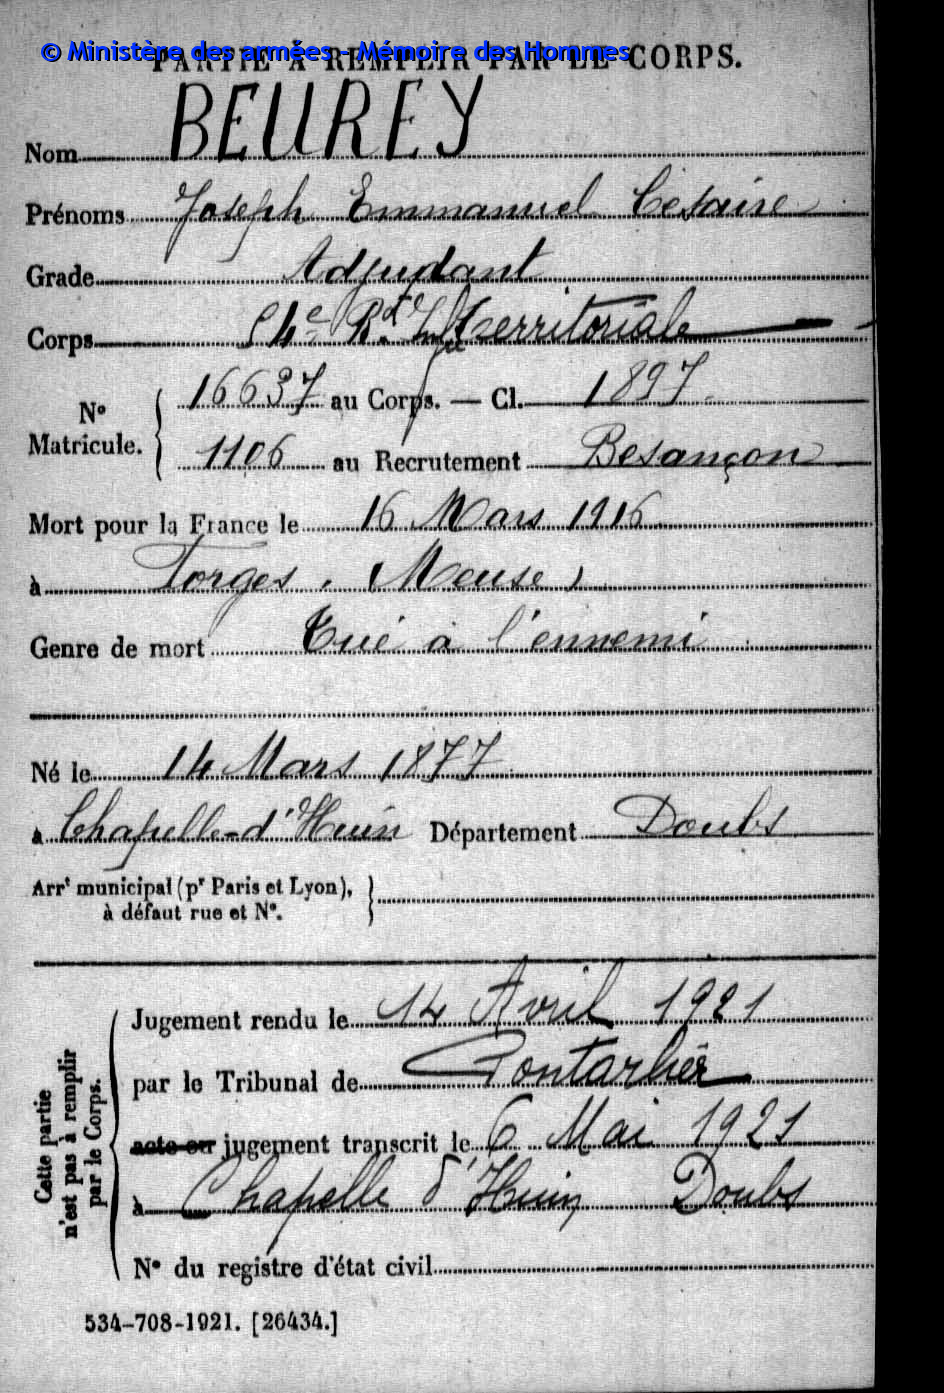 © Ministère des armées - Mémoire des Hommes
PARTIE À REMPLIR PAR LE CORPS.
Nom BEUREY
Prénoms Joseph Emmanuel Césaire
Grade Adjudant
Corps 54e Rt d' Infie territoriale
No Matricule. 16637 au Corps. — Cl. 1897
1106 au Recrutement Besançon
Mort pour la France le 16 Mars 1916
à Forges, (Meuse)
Genre de mort Tué à l'ennemi
Né le 14 Mars 1877
à Chapelle-d'Huin Département Doubs
Arrt municipal (pr Paris et Lyon),
à défaut rue et No.
Cette partie
n'est pas à remplir
par le Corps.
Jugement rendu le 14 Avril 1921
par le Tribunal de Pontarlier
acte ou jugement transcrit le 6 Mai 1921
à Chapelle d'Huin Doubs
No du registre d'état civil
534-708-1921. [26434.]